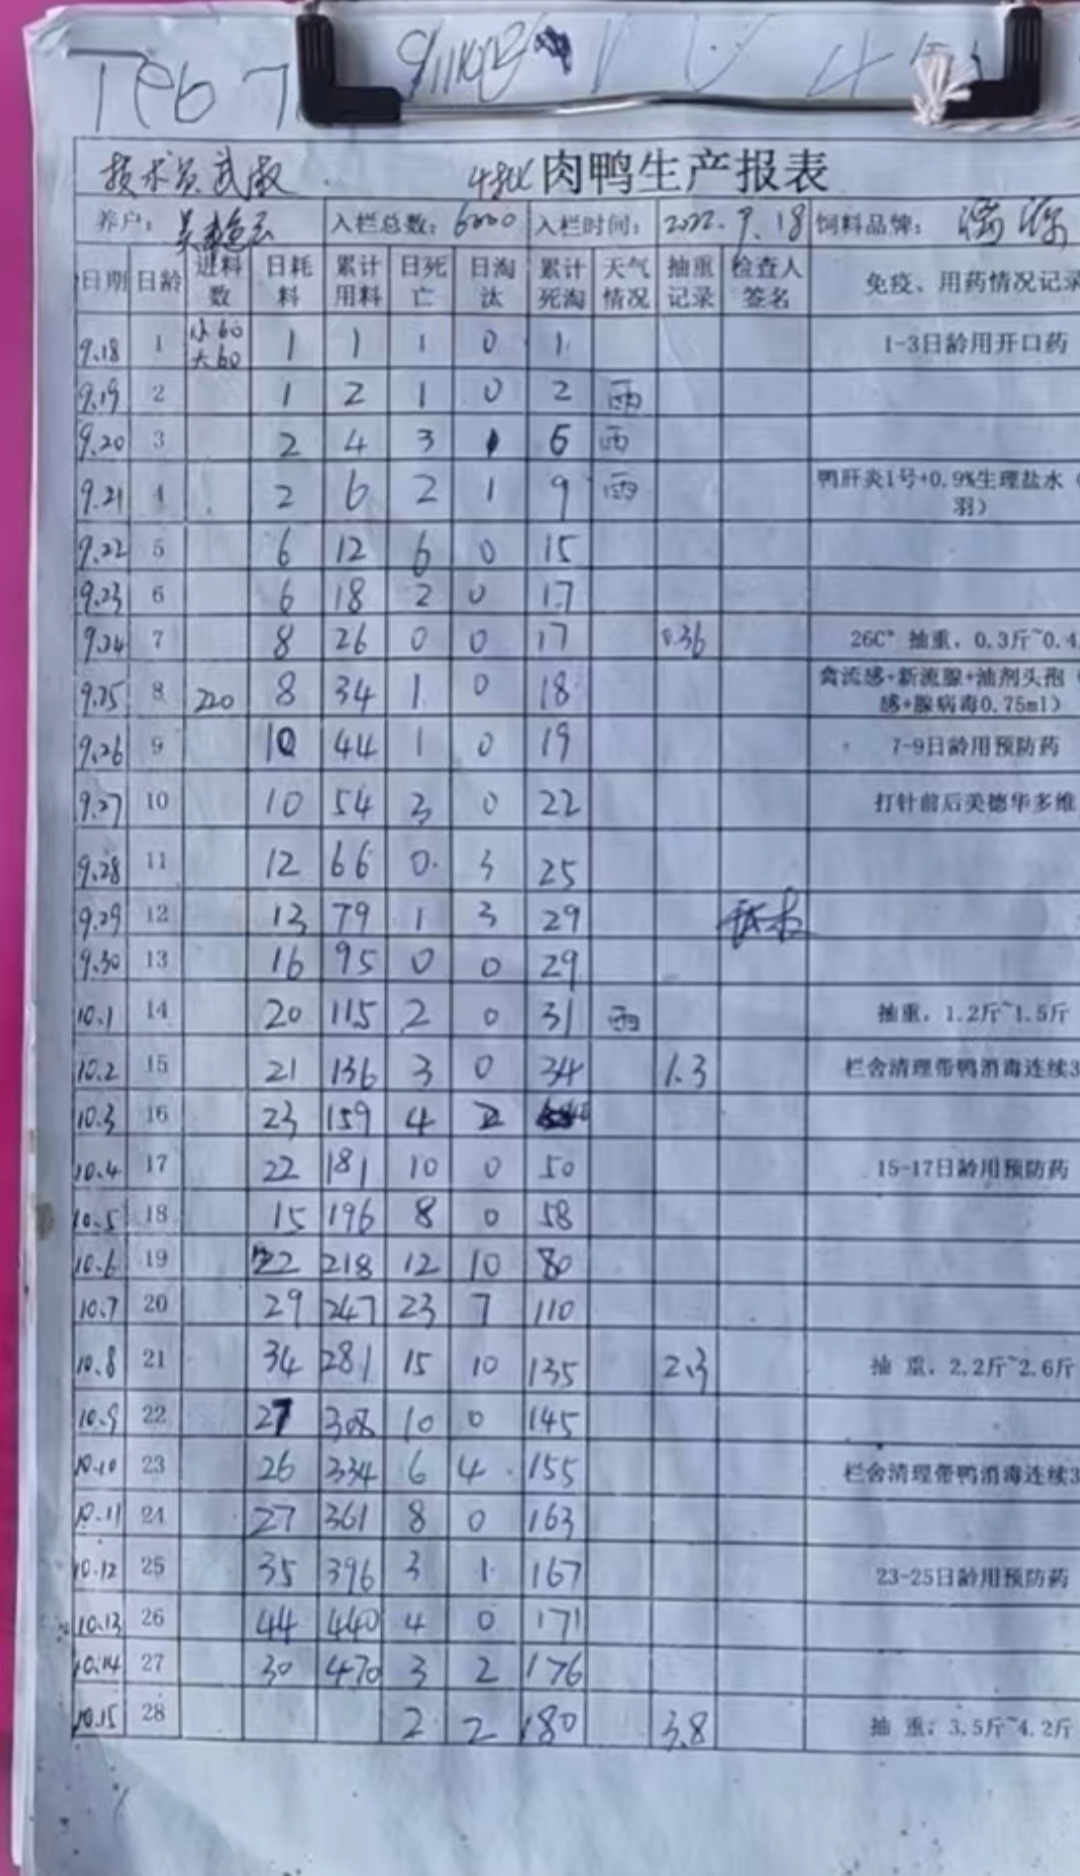 技术员武敏 4批 肉鸭生产报表
养户： 入栏总数：6000 入栏时间：2022.9.18 饲料品牌：
日期 日龄 进料数 日耗料 累计用料 日死亡 日淘汰 累计死淘 天气情况 抽重记录 检查人签名 免疫、用药情况记录
9.18 1 小60 大60 1 1 1 0 1 1-3日龄用开口药
9.19 2 1 2 1 0 2 雨
9.20 3 2 4 3 1 6 雨
9.21 4 2 6 2 1 9 雨 鸭肝炎1号+0.9%生理盐水（ 羽）
9.22 5 6 12 6 0 15
9.23 6 6 18 2 0 17
9.24 7 8 26 0 0 17 0.36 26C° 抽重，0.3斤~0.4
9.25 8 220 8 34 1 0 18 禽流感+新流腺+油剂头孢（ 感+腺病毒0.75ml）
9.26 9 10 44 1 0 19 7-9日龄用预防药
9.27 10 10 54 3 0 22 打针前后美德华多维
9.28 11 12 66 0 3 25
9.29 12 13 79 1 3 29
9.30 13 16 95 0 0 29
10.1 14 20 115 2 0 31 雨 抽重，1.2斤~1.5斤
10.2 15 21 136 3 0 34 1.3 栏舍清理带鸭消毒连续3
10.3 16 23 159 4 2
10.4 17 22 181 10 0 50 15-17日龄用预防药
10.5 18 15 196 8 0 58
10.6 19 22 218 12 10 80
10.7 20 29 247 23 7 110
10.8 21 34 281 15 10 135 2.3 抽 重，2.2斤~2.6斤
10.9 22 27 308 10 0 145
10.10 23 26 334 6 4 155 栏舍清理带鸭消毒连续3
10.11 24 27 361 8 0 163
10.12 25 35 396 3 1 167 23-25日龄用预防药
10.13 26 44 440 4 0 171
10.14 27 30 470 3 2 176
10.15 28 2 2 180 3.8 抽 重，3.5斤~4.2斤